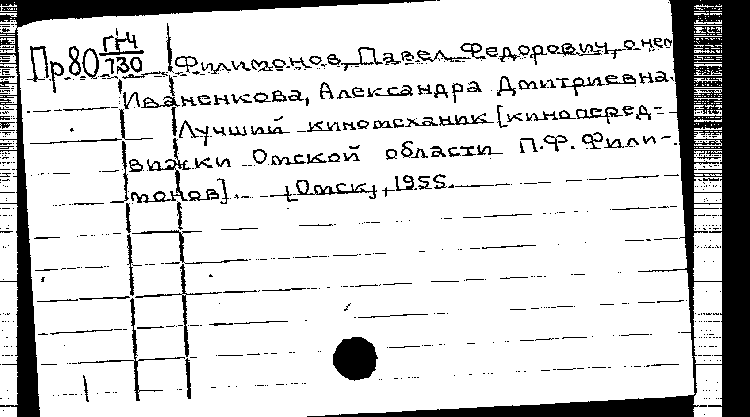 Пр80 ГНЧ/730 Филимонов, Павел Федорович, о нем
Иваненкова, Александра Дмитриевна.
Лучший киномеханик [киноперед-
вижки Омской области П.Ф. Фили-
монов]. [Омск], 1955.